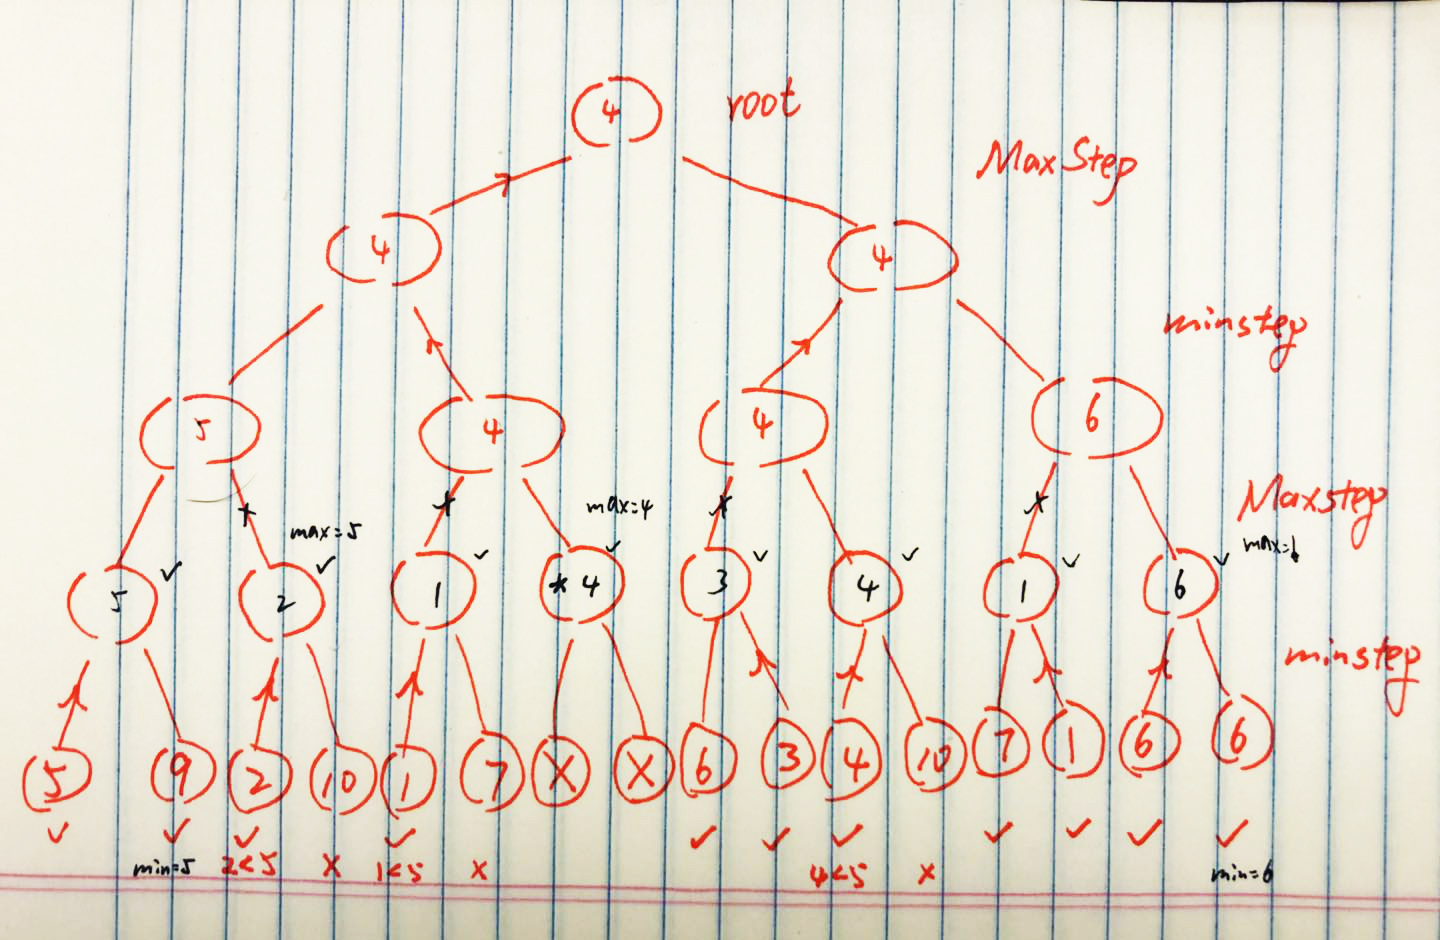 4 root
MaxStep
4 4
minstep
5 4 4 6
Maxstep
max=5 max=4 max=6
5 2 1 *4 3 4 1 6
minstep
5 9 2 10 1 7 X X 6 3 4 10 7 1 6 6
min=5 2<5 x 1<5 x 4<5 x min=6